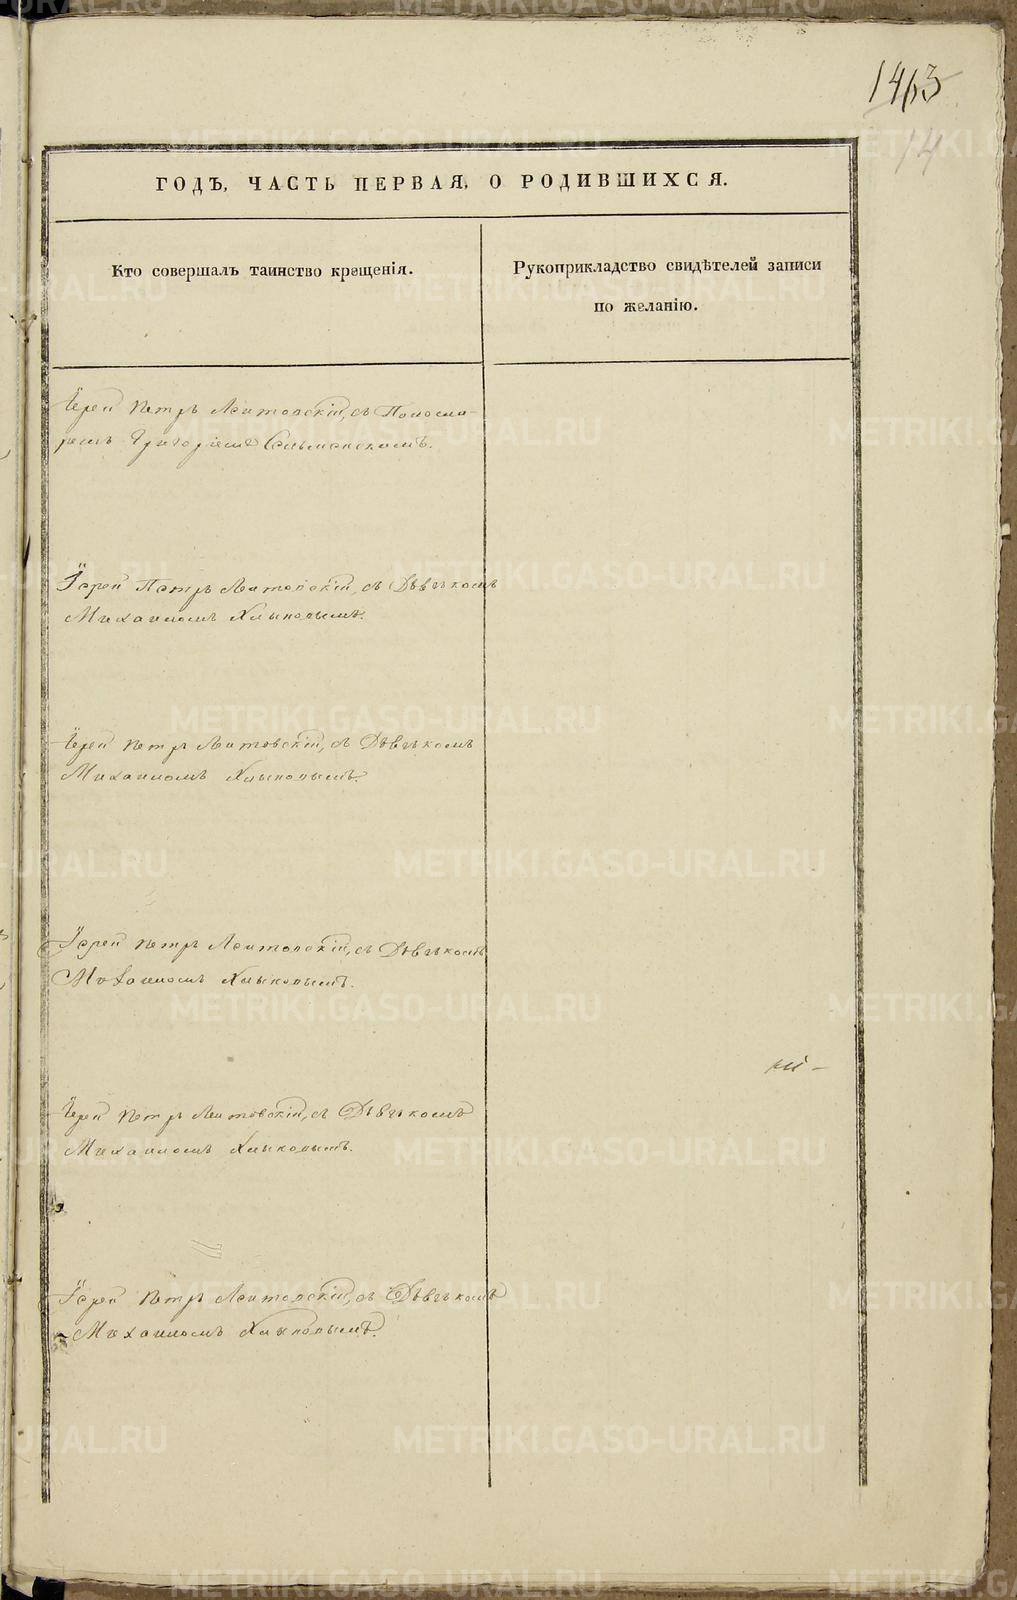 1463
14
ГОДЪ, ЧАСТЬ ПЕРВАЯ, О РОДИВШИХСЯ.
Кто совершалъ таинство крещенія.
Рукоприкладство свидѣтелей записи
по желанію.
Іерей Петръ Литовскій, съ Понома-
ремъ Григоріемъ
Іерей Петръ Литовскій, съ Дьячкомъ
Михаиломъ Хлыновымъ.
Іерей Петръ Литовскій, съ Дьячкомъ
Михаиломъ Хлыновымъ.
Іерей Петръ Литовскій, съ Дьячкомъ
Михаиломъ Хлыновымъ.
Іерей Петръ Литовскій, съ Дьячкомъ
Михаиломъ Хлыновымъ.
Іерей Петръ Литовскій, съ Дьячкомъ
Михаиломъ Хлыновымъ.
METRIKI.GASO-URAL.RU